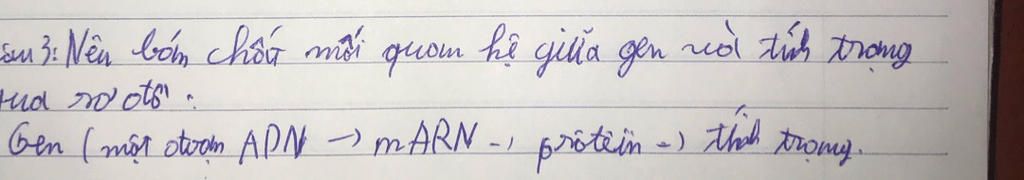 Câu 3: Nêu bản chất mối quan hệ giữa gen và tính trạng
qua sơ đồ:
Gen (một đoạn ADN → mARN → prôtêin → tính trạng.